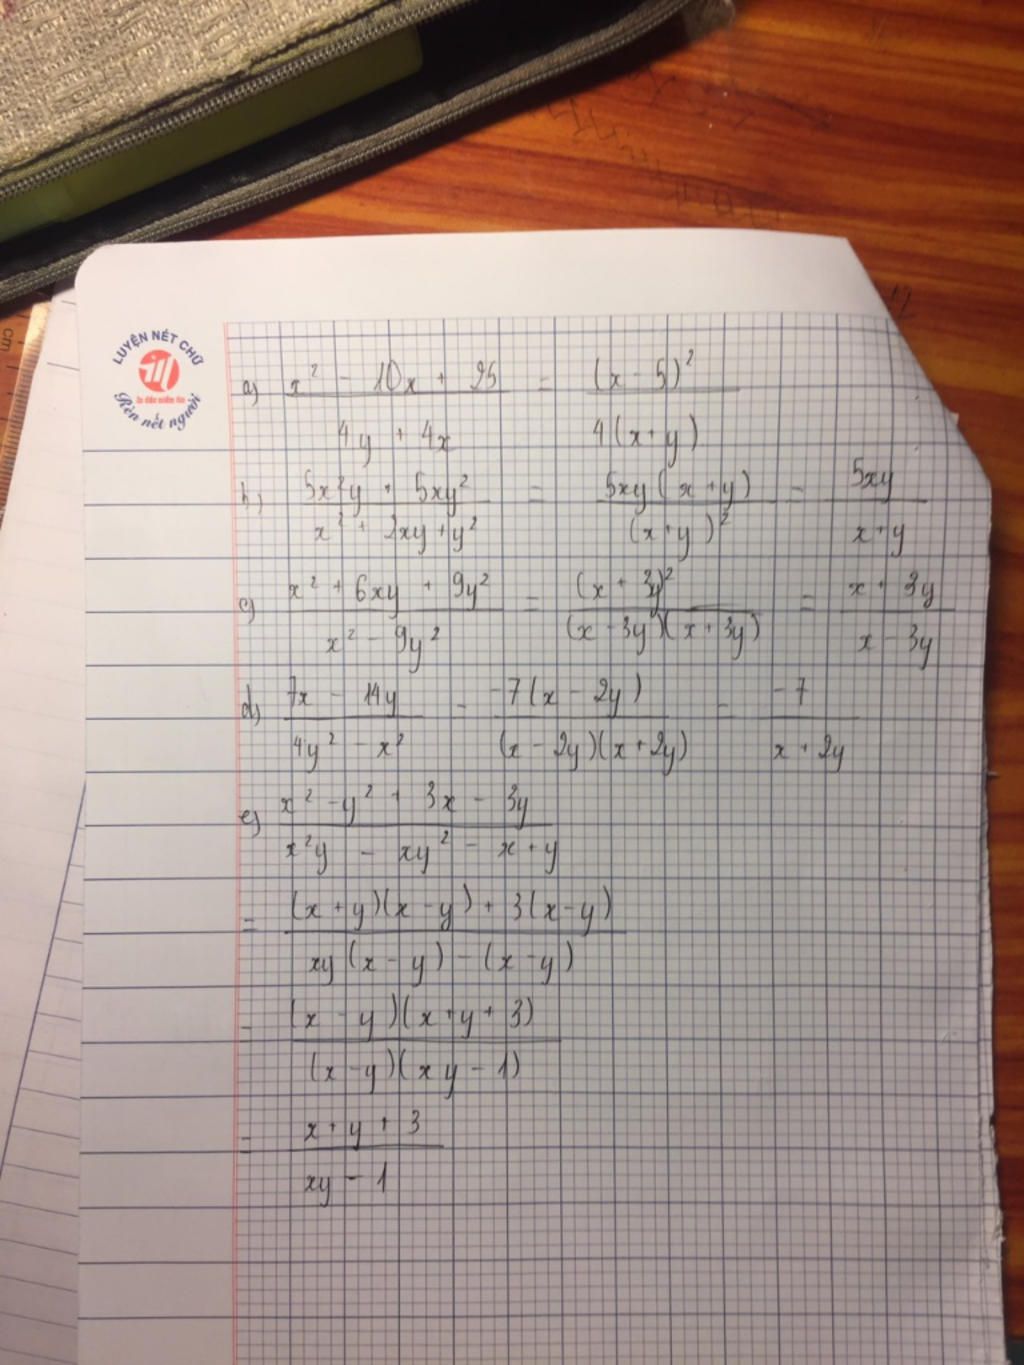 LUYỆN NẾT CHỮ
Rèn nết người
a) (x² - 10x + 25)/(4y + 4x) = (x - 5)²/4(x+y)
b) (5x²y + 5xy²)/(x² + 2xy + y²) = 5xy(x+y)/(x+y)² = 5xy/(x+y)
c) (x² + 6xy + 9y²)/(x² - 9y²) = (x + 3y)²/(x - 3y)(x + 3y) = (x + 3y)/(x - 3y)
d) (7x - 14y)/(4y² - x²) = -7(x - 2y)/(x - 2y)(x + 2y) = -7/(x + 2y)
e) (x² - y² + 3x - 3y)/(x²y - xy² - x + y)
= ((x + y)(x - y) + 3(x - y))/(xy(x - y) - (x - y))
= (x - y)(x + y + 3)/(x - y)(xy - 1)
= (x + y + 3)/(xy - 1)
cm